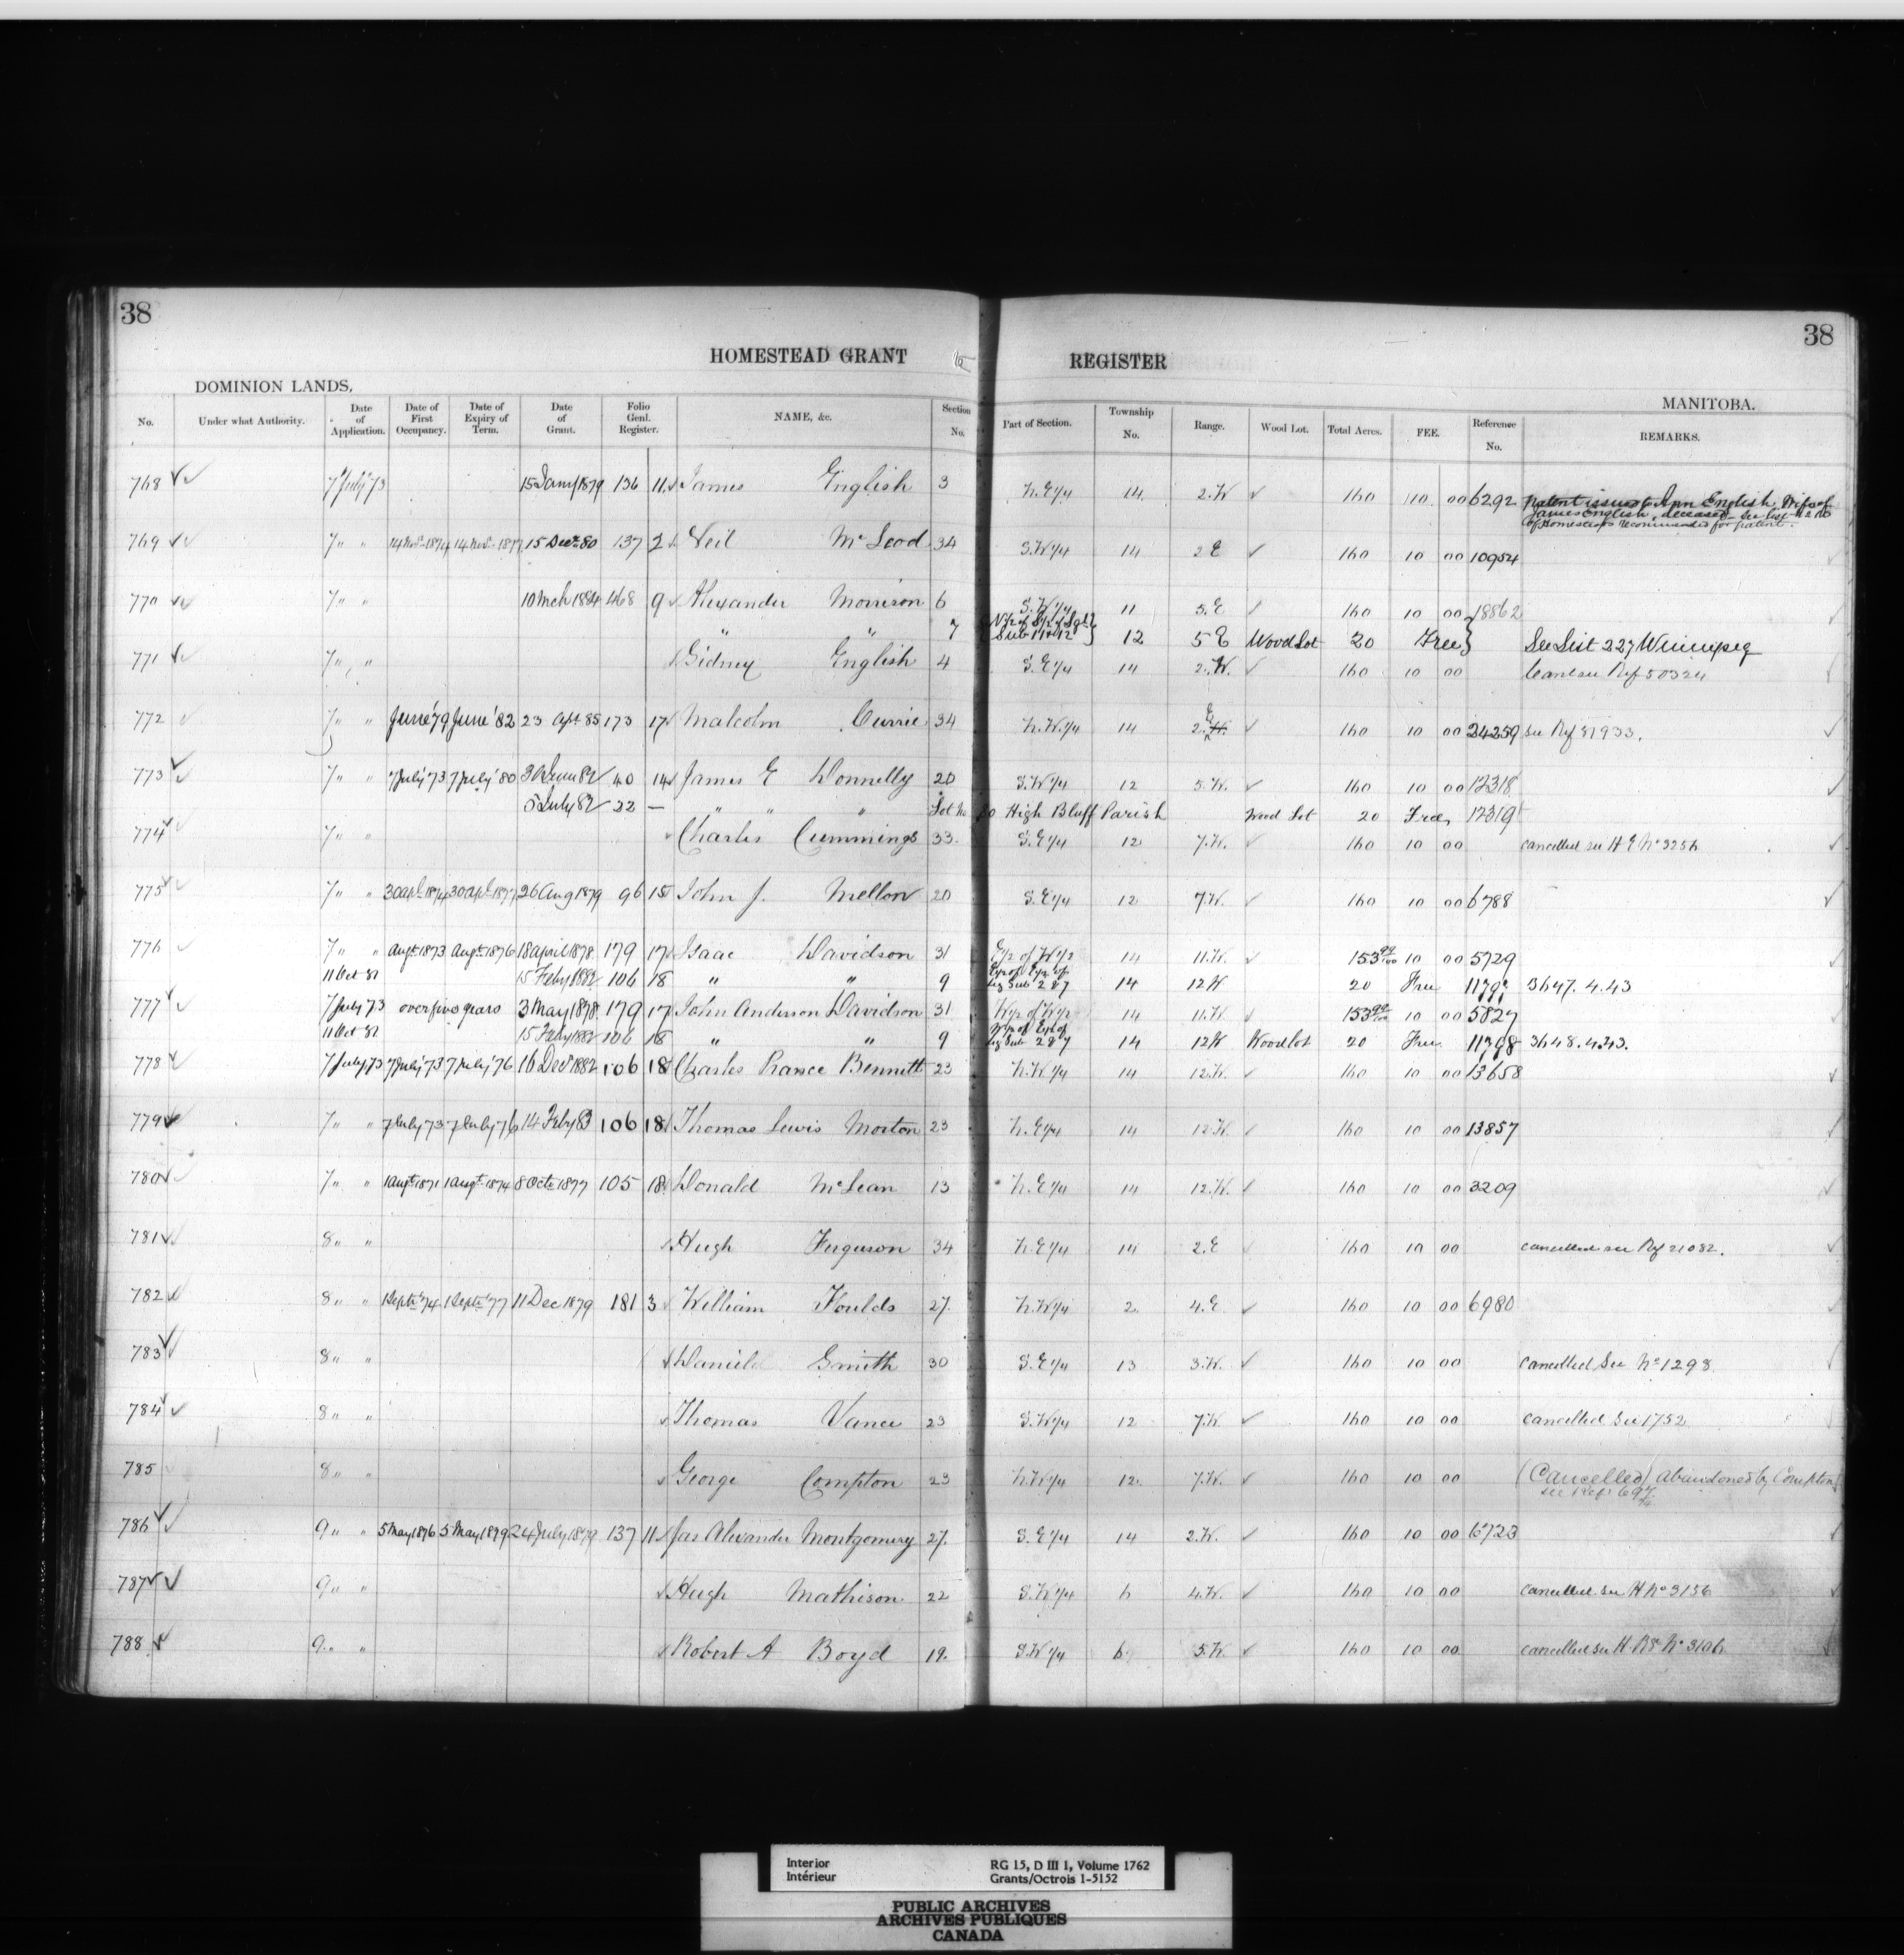 38
38
HOMESTEAD GRANT REGISTER
DOMINION LANDS.
MANITOBA.
No. Under what Authority. Date of Application. Date of First Occupancy. Date of Expiry of Term. Date of Grant. Folio Genl. Register. NAME, &c. Section No. Part of Section. Township No. Range. Wood Lot. Total Acres. FEE. Reference No. REMARKS.
768 7 July 73 15 Jany 1879 136 11 James English 3 N.E 1/4 14 2.W 160 10 00 6292 Patent issued to Ann English, Wife of
James English, deceased See List
of Homesteads recommended for patent.
769 7 " " 14 Nov. 1874 14 Nov. 1877 15 Decr. 80 137 2 Neil McLeod 34 S.W 1/4 14 2 E 160 10 00 10954
770 7 " " 10 Mch 1884 468 9 Alexander Morrison 6 S.W 1/4 11 5.E 160 10 00 18862
" " 7 12 5 E Wood Lot 20 Free See List 227 Winnipeg
771 7 " " Sidney English 4 S.E 1/4 14 2.W. 160 10 00 see Ref 50324
772 7 " " June '79 June '82 23 Apl. 85 173 17 Malcolm Currie 34 N.W. 1/4 14 2. E 160 10 00 24259 see Ref 81933.
773 7 " " 7 July '73 7 July '80 40 14 James E Donnelly 20 S.W 1/4 12 5.W. 160 10 00 12318
5 July 82 22 — " " " Lot No High Bluff Parish Wood Lot 20 Free 12319
774 7 " " Charles Cummings 33. S.E 1/4 12 7.W. 160 10 00 cancelled see H E No 3256
775 7 " " 30 Apl. 1874 30 Apl. 1877 26 Aug 1879 96 15 John J. Mellon 20 S.E 1/4 12 7.W. 160 10 00 6788
776 7 " " Augt. 1873 Augt. 1876 18 April 1878 179 17 Isaac Davidson 31 E 1/2 of W 1/2 14 11.W. 153 99/100 10 00 5729
11 Oct 81 15 Feby 1882 106 18 " " 9 14 12 W 20 Free 3647. 4.43
777 7 July 73 over five years 3 May 1878. 179 17 John Anderson Davidson 31 W 1/2 of W 1/2 14 11.W. 153 99/100 10 00 5827
11 Oct 81 15 Feby 1882 106 18 " " 9 14 12W Wood lot 20 Free 11798 3648.4.43.
778 7 July 73 7 July '73 7 July '76 16 Decr 1882 106 18 Charles Prance Bennett 23 N.W 1/4 14 12.W. 160 10 00 13658
779 7 " " 7 July '73 7 July '76 14 Feby 83 106 18 Thomas Lewis Morton 23 N.E 1/4 14 12.W. 160 10 00 13857
780 7 " " 1 Augt. 1871 1 Augt. 1874 8 Octr 1877 105 18 Donald McLean 13 N.E 1/4 14 12.W. 160 10 00 3209
781 8 " " Hugh Ferguson 34 N.E 1/4 14 2.E 160 10 00 cancelled see Ref 21082.
782 8 " " 1 Septr '74 1 Septr '77 11 Dec 1879 181 3 William Foulds 27. N.W 1/4 2. 4.E 160 10 00 6980
783 8 " " Daniel Smith 30 S.E 1/4 13 3.W. 160 10 00 cancelled See No 1298
784 8 " " Thomas Vance 23 S.W 1/4 12 7.W. 160 10 00 cancelled See 1752
785 8 " " George Compton 23 N.W 1/4 12. 7.W. 160 10 00 (Cancelled) Abandoned by Compton
see Ref: 697
786 9 " " 5 May 1876 5 May 1879 24 July 1879 137 11 Jas Alexander Montgomery 27. S.E 1/4 14 2.W. 160 10 00 6723
787 9 " " Hugh Mathison 22 S.W 1/4 6 4.W. 160 10 00 cancelled see H No 3156
788 9 " " Robert A Boyd 19. S.W 1/4 6 5.W 160 10 00 cancelled see H. No 3106
Interior
Intérieur
RG 15, D III 1, Volume 1762
Grants/Octrois 1-5152
PUBLIC ARCHIVES
ARCHIVES PUBLIQUES
CANADA